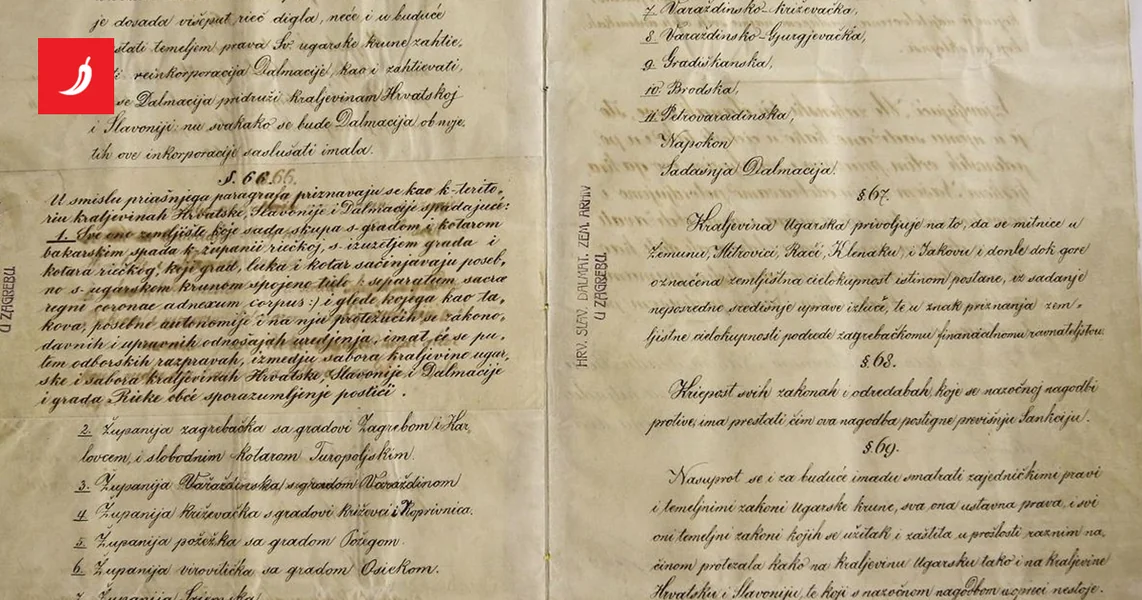 je dosada višeput rieč digla, neće i u buduće
stati temeljem prava Sv. ugarske krune zahtie,
ti reinkorporacija Dalmacije, kao i zahtievati,
se Dalmacija pridruži kraljevinam Hrvatskoj
i Slavoniji: nu svakako se bude Dalmacija ob uvje,
tih ove inkorporacije saslušati imala.
§. 66.
U smislu priašnjiga paragrafa priznavaju se kao k-terito,
riu kraljevinah Hrvatske, Slavonije i Dalmacije spadajuće:
1. Sve ono zemljište koje sada, skupa s gradom i kotarom
bakarskim spada k-županii riečkoj, s-izuzetjem grada i
kotara riečkog, koji grad, luka i kotar sačinjavaju poseb,
no s-ugarskom krunom spojeno tielo (: separatum sacra
regni coronae adnexum corpus :) i glede kojega kao ta,
kova, posebne autonomije i na nju protežućih se zakono,
davnih i upravnih odnošajah uredjenja, imat će se pu,
tem odborskih razpravah, izmedju sabora kraljevine ugar,
ske i sabora kraljevinah Hrvatske, Slavonije i Dalmacije
i grada Rieke obće sporazumljenje postići.
2. Županija zagrebačka sa gradovi Zagrebom i Kar,
lovcem, i slobodnim kotarom Turopoljskim.
3. Županija Varaždinska s gradom Varaždinom
4. Županija križevačka s gradovi križevci i Koprivnica.
5. Županija požežka sa gradom Požegom.
6. Županija virovitička sa gradom Osiekom.
7. Županija Sriemska
U ZAGREBU
7. Varaždinsko-križevačka,
8. Varaždinsko-Gjurgjevačka,
9. Gradiškanska,
10. Brodska,
11. Petrovaradinska,
Napokon
Sadašnja Dalmacija.
§ 67.
Kraljevina Ugarska privoljuje na to, da se mitnice u
Zemunu, Mitrovici, Rači, Klenaku i Jakovu i donle dok gore
označena zemljištna cielokupnost istinom postane, iz sadanje
neposredno središnje uprave izluče, te u znak priznanja zem,
ljištne cielokupnosti podrede zagrebačkomu financialnomu ravnateljstvu.
§ 68.
Kriepost svih zakonah i odredabah, koje se nazočnoj nagodbi
protive, ima prestati čim ova nagodba postigne previšnju Sankciju.
§ 69.
Nasuprot se i za buduće imadu smatrati zajedničkimi pravi
i temeljnimi zakoni Ugarske krune, sva ona ustavna prava, i svi
oni temeljni zakoni kojih se užitak i zaštita u prošlosti raznim na,
činom protezala kako na kraljevinu Ugarsku tako i na kraljevine
Hrvatsku i Slavoniju, te koji s nazočnom nagodbom u opreci nestoje.
HRV. SLAV. DALMAT. ZEM. ARHIV
U ZAGREBU